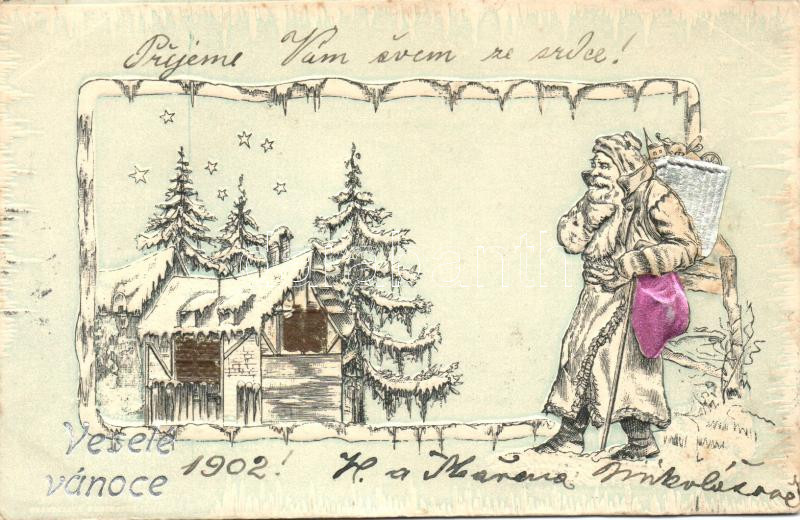 Přijeme Vám všem ze srdce!
Veselé
vánoce
1902! H. a Mařena Mikolášové